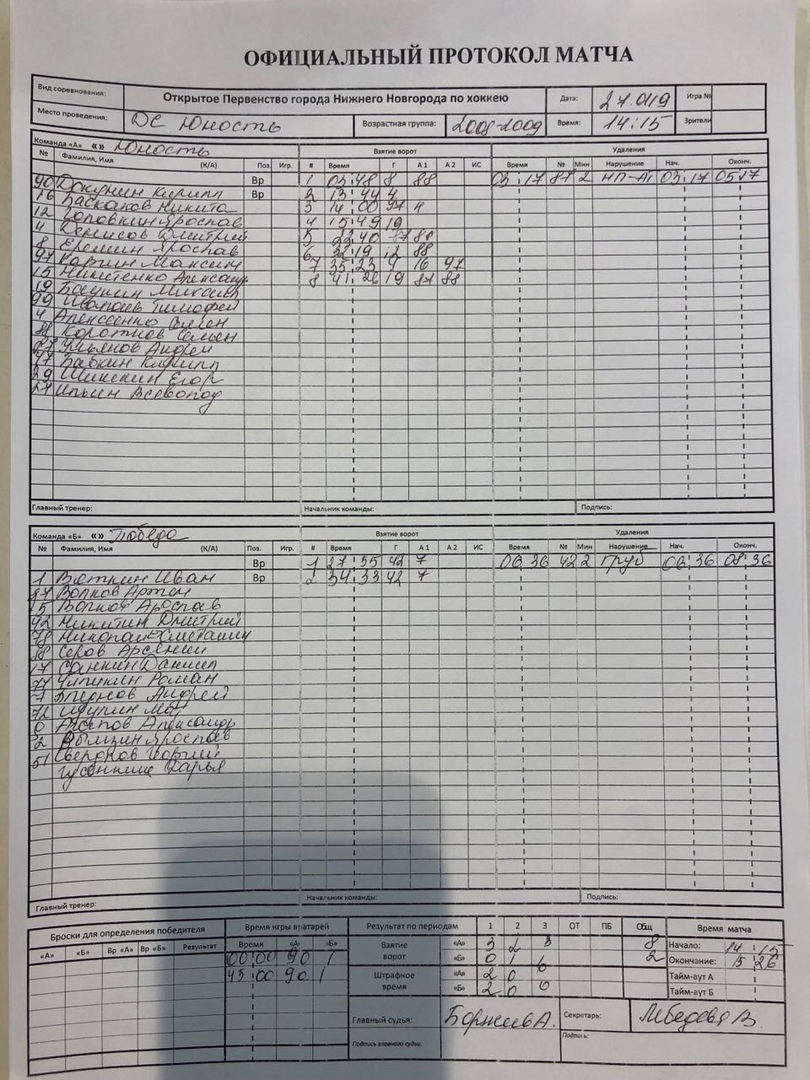 ОФИЦИАЛЬНЫЙ ПРОТОКОЛ МАТЧА
Вид соревнования: Открытое Первенство города Нижнего Новгорода по хоккею Дата: Игра №
Место проведения: ДС Юность Возрастная группа: 2008-2009 Время: 14:15 Зрители
Команда «А» «» Юность Взятие ворот Удаления
№ Фамилия, Имя (К/А) Поз. Игр. # Время Г А 1 А 2 ИС Время № Мин Нарушение Нач. Оконч.
90 Докунин Кирилл Вр 1 03:48 8 88 03:17 87 2 НП-Ат 03:17 05:17
16 Баскаков Никита Вр 2 13:44 4
12 Головкин Ярослав 3 14:00 97 4
Денисов Дмитрий 4 15:49 19
8 Еремин Ярослав 5 22:40 87 88
97 Каргин Максим 6 32:19 12 88
15 Никитенко Александр 7 35:23 9 16 97
19 Михаил 8 41:26 19 87 88
99 Тимофей
4 Алексеенко
Коротков Семен
Ульянов Андрей
77 Бабкин Кирилл
29 Шишкин Егор
27 Ильин Всеволод
Главный тренер: Начальник команды: Подпись:
Команда «Б» «» Победа Взятие ворот Удаления
№ Фамилия, Имя (К/А) Поз. Игр. # Время Г А 1 А 2 ИС Время № Мин Нарушение Нач. Оконч.
Вр 1 27:55 42 7 06:36 42 2 Груб 06:36 08:36
1 Вяткин Иван Вр 2 34:33 42 7
Волков Артем
5 Волков Ярослав
Никитин Дмитрий
78 Николай
Серов Арсений
17 Санкин Даниил
77 Роман
7 Андрей
0 Александр
2 Ярослав
51 Георгий
Дарья
Главный тренер: Начальник команды: Подпись:
Броски для определения победителя Время игры вратарей Результат по периодам 1 2 3 ОТ ПБ Общ Время матча
«А» «Б» Вр «А» Вр «Б» Результат Время «А» «Б» Взятие ворот «А» 3 2 3 8 Начало: 14:15
00:00 90 1 «Б» 0 1 2 Окончание: 15:26
45:00 90 1 Штрафное время «А» 2 0 Тайм-аут А
«Б» 2 0 0 Тайм-аут Б
Главный судья: Секретарь: Лебедева В.
Подпись главного судьи: Подпись: